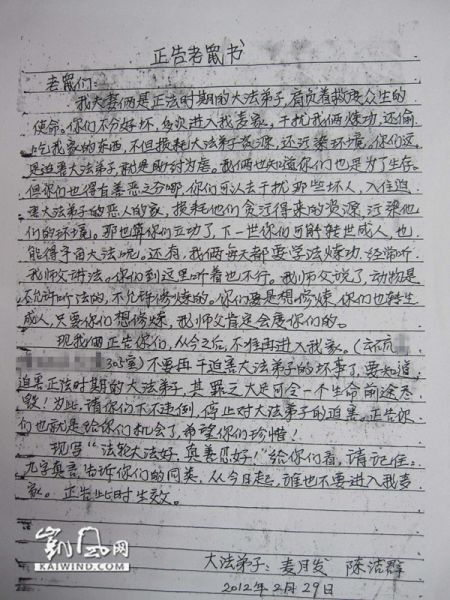 正告老鼠书
老鼠们:
我夫妻俩是正法时期的大法弟子,肩负着救度众生的
使命。你们不分好坏,多次进入我麦家,干扰我俩炼功,还偷
吃我家的东西,不但损耗大法弟子资源,还污染环境。你们这
是迫害大法弟子,就是助纣为虐。我俩也知道你们也是为了生存。
但你们也得有善恶之分哪,你们可以去干扰那些坏人,入住迫
害大法弟子的恶人的家,损耗他们贪污得来的资源,污染他
们的环境。那也算你们立功了,下一世你们可能转世成人,也
能得宇宙大法呢。还有,我俩每天都要学法炼功,经常听
我师父讲法。你们到这里听着也不行。我师父说了,动物是
不允许听法的,不允许修炼的。你们要是想修炼,你们也转生
成人,只要你们想修炼,我师父肯定会度你们的。
现我俩正告你们,从今之后,不准再进入我家。(
305室)不要再干迫害大法弟子的坏事了,要知道
迫害正法时期的大法弟子,其罪之大足可令一个生命前途尽
毁!为此,请你们下不违例,停止对大法弟子的迫害。正告你
们也就是给你们机会了,希望你们珍惜!
现写“法轮大法好,真善忍好!”给你们看,请记住
九字真言,告诉你们的同类,从今日起,谁也不要进入我麦
家。正告此时生效。
大法弟子:麦月发 陈洁群
2012年2月29日
凯风网
KAIWIND.COM